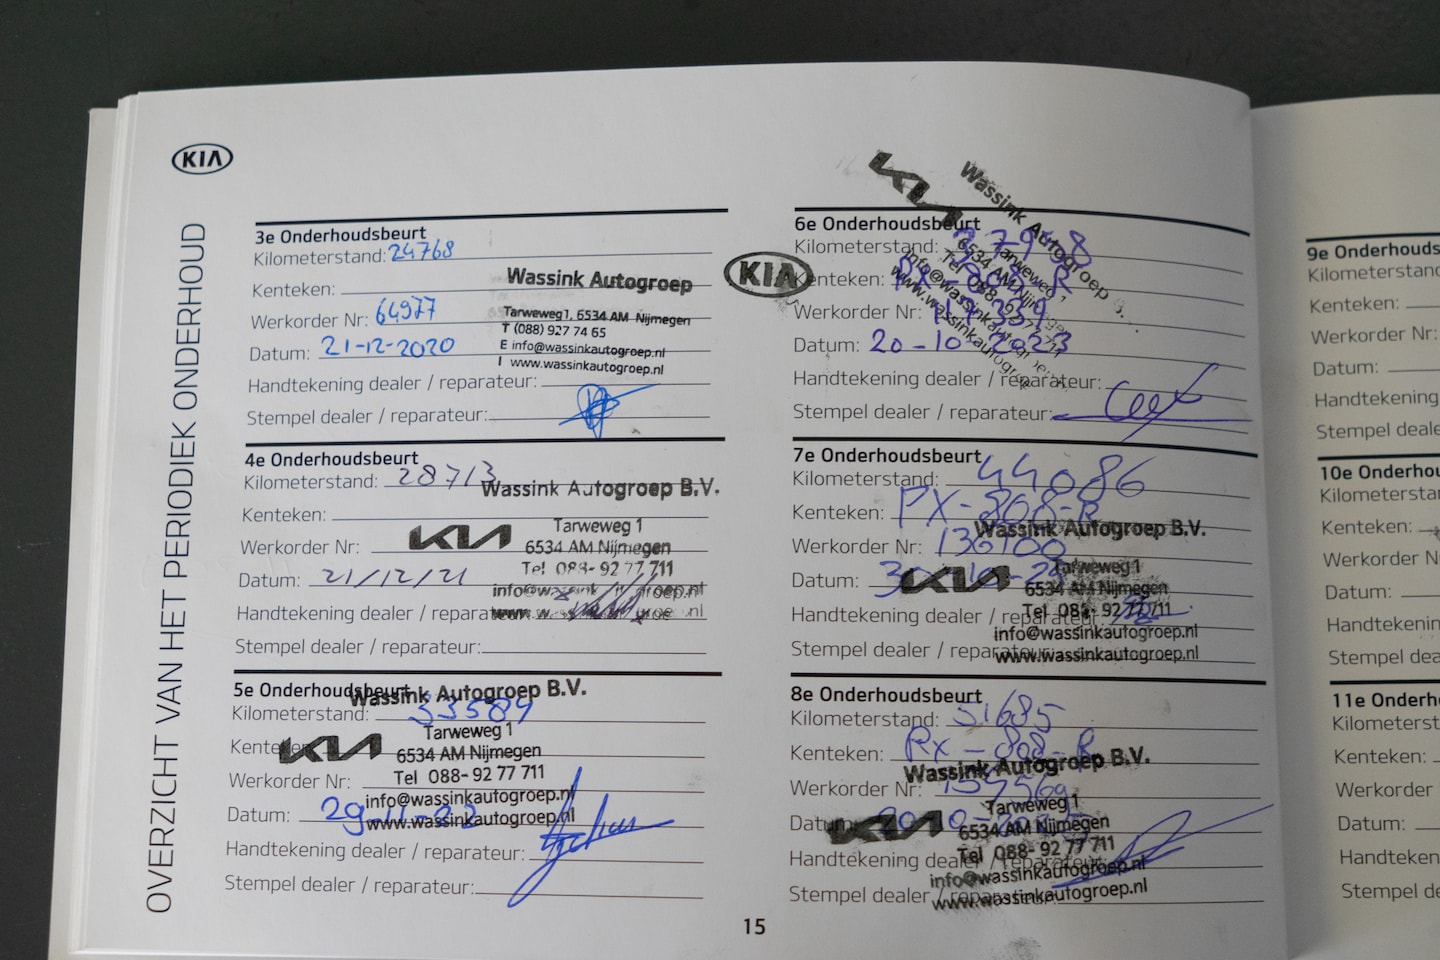 KIA
OVERZICHT VAN HET PERIODIEK ONDERHOUD
3e Onderhoudsbeurt
Kilometerstand: 24768
Kenteken:
Werkorder Nr: 64977
Datum: 21-12-2020
Handtekening dealer / reparateur:
Stempel dealer / reparateur:
Wassink Autogroep
Tarweweg 1, 6534 AM Nijmegen
T (088) 927 74 65
E info@wassinkautogroep.nl
I www.wassinkautogroep.nl
4e Onderhoudsbeurt
Kilometerstand: 28713
Kenteken:
Werkorder Nr:
Datum: 21/12/21
Handtekening dealer / reparateur:
Stempel dealer / reparateur:
Wassink Autogroep B.V.
KIA
Tarweweg 1
6534 AM Nijmegen
Tel 088-92 77 711
5e Onderhoudsbeurt
Kilometerstand: 33589
Kenteken:
Werkorder Nr:
Datum: 29-11-22
Handtekening dealer / reparateur:
Stempel dealer / reparateur:
Wassink Autogroep B.V.
KIA
Tarweweg 1
6534 AM Nijmegen
Tel 088-92 77 711
info@wassinkautogroep.nl
www.wassinkautogroep.nl
KIA
6e Onderhoudsbeurt
Kilometerstand: 37968
Kenteken:
Werkorder Nr:
Datum: 20-10-2023
Handtekening dealer / reparateur:
Stempel dealer / reparateur:
KIA
Wassink Autogroep
Tarweweg 1
6534 AM Nijmegen
Tel 088-92 77 711
7e Onderhoudsbeurt
Kilometerstand: 44086
Kenteken: PX-808-R
Werkorder Nr: 136100
Datum:
Handtekening dealer / reparateur:
Stempel dealer / reparateur:
Wassink Autogroep B.V.
KIA
Tarweweg 1
6534 AM Nijmegen
Tel 088-92 77 711
info@wassinkautogroep.nl
www.wassinkautogroep.nl
8e Onderhoudsbeurt
Kilometerstand: 51685
Kenteken: PX-808-R
Werkorder Nr:
Datum:
Handtekening dealer / reparateur:
Stempel dealer / reparateur:
Wassink Autogroep B.V.
KIA
Tarweweg 1
6534 AM Nijmegen
Tel 088-92 77 711
info@wassinkautogroep.nl
www.wassinkautogroep.nl
15
9e Onderhouds
Kilometerstand
Kenteken:
Werkorder Nr:
Datum:
Handtekening
Stempel deale
10e Onderhou
Kilometersta
Kenteken:
Werkorder N
Datum:
Handtekenin
Stempel dea
11e Onderh
Kilometerst
Kenteken:
Werkorder
Datum:
Handteken
Stempel de